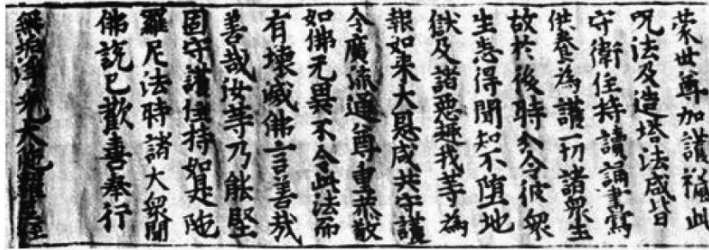 蒙世尊加護稱此
呪法及造塔法咸皆
守衛住持讀誦書寫
供養為護一切諸衆生
故於後時分令彼衆
生悉得聞知不墮地
獄及諸惡趣我等為
報如来大恩咸共守護
令廣流通尊重恭敬
如佛无異不令此法而
有壞滅佛言善哉
善哉汝等乃能堅
固守護住持如是陁
羅尼法時諸大衆聞
佛說已歡喜奉行
無垢淨光大陁羅尼經